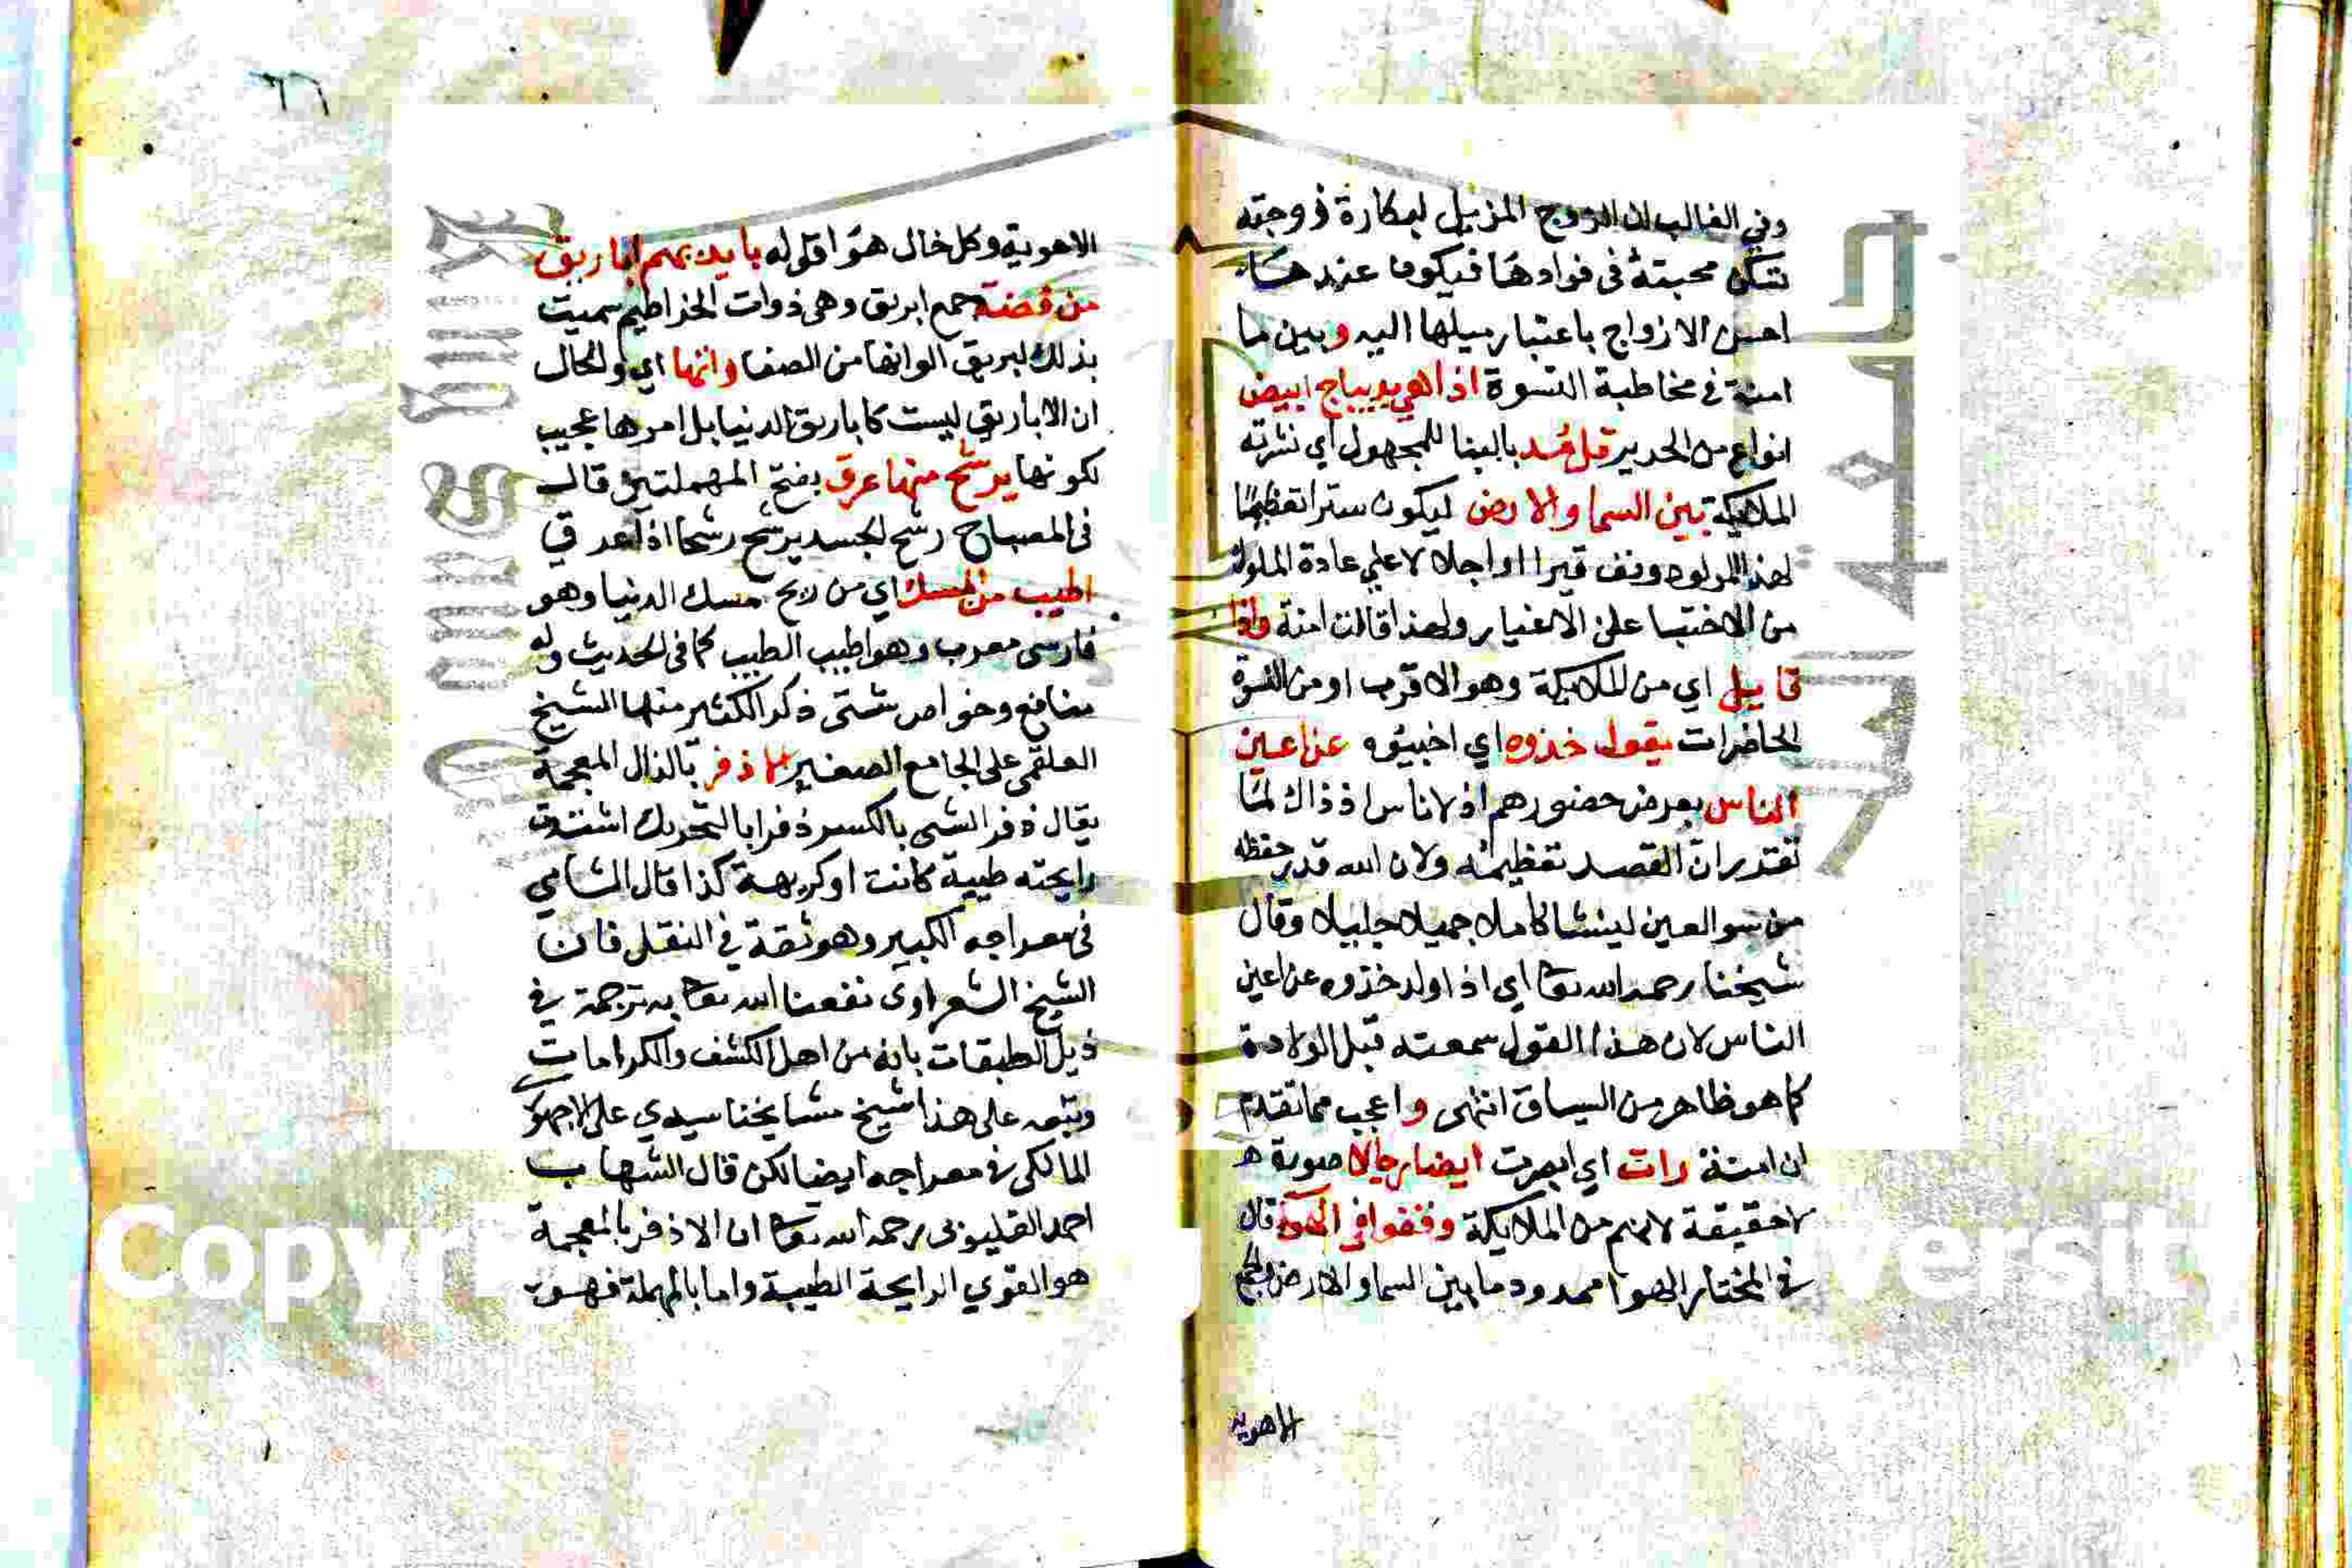 وفي الغالب ان الزوج المزيل لبكارة زوجته
تتكن محبتة في فوادها فيكون عندها
احسن الازواج باعتبار ميلها اليه وبين ما
امنة في مخاطبة النسوة اذا هي بديباج ابيض
انواع من الحرير قد مُد بالبنا للمجهول اي نشرته
الملايكة بين السما والارض ليكون سترا تعظيمًا
لهذا المولود وتوقيرا واجلالا علي عادة الملوك
من الاختبا على الاغيار ولهذا قالت امنة واذا
قايل اي من الملايكة وهو الاقرب او من النسوة
الحاضرات يقول خذوه اي اخبيوه عن اعين
الناس بعرض حضورهم اذ لا ناس اذ ذاك لما
تقدير ان القصد تعظيمه ولان الله قد حفظه
من سو العين لينشا كاملا جميلا جليلا وقال
شيخنا رحمه الله تعا اي اذا ولد خذوه عن اعين
الناس لان هذا القول سمعته قبل الولادة
كما هو ظاهر من السياق انتهى واعجب مما تقدم
ان امنة رات اي ابصرت ايضا رجالا صورة
لا حقيقة لانهم من الملايكة وقفوا في الهوا قال
في المختار الهوا ممدود ما بين السما والارض والجمع
الاهوية
٦٦
الاهوية وكل خال هوا اقله له بايديهم اباريق
من فضة جمع ابريق وهي ذوات الخراطيم سميت
بذلك لبريق الوانها من الصفا وانها اي والحال
ان الاباريق ليست كاباريق الدنيا بل امرها عجيب
لكونها يرشح منها عرق بفتح المهملتين قال
في المصباح رشح الجسد يرشح رشحا اذا عرق
اطيب من المسك اي من ريح مسك الدنيا وهو
فارسى معرب وهو اطيب الطيب كما في الحديث وله
منافع وخواص شتى ذكر الكثير منها الشيخ
العلقمي على الجامع الصغير الاذفر بالذال المعجمة
يقال ذفر الشي بالكسر ذفرا بالتحريك اشتدت
رايحته طيبة كانت او كريهة كذا قال الشامي
في معراجه الكبير وهو ثقة في النقل فان
الشيخ الشعراوى نفعنا الله تعا به ترجمة في
ذيل الطبقات بانه من اهل الكشف والكرامات
وتبعه على هذا شيخ مشايخنا سيدي على الاجهورى
المالكي في معراجه ايضا لكن قال الشهاب
احمد القليوبى رحمه الله تعا ان الاذفر بالمعجمة
هو القوي الرايحة الطيبة واما بالمهملة فهو